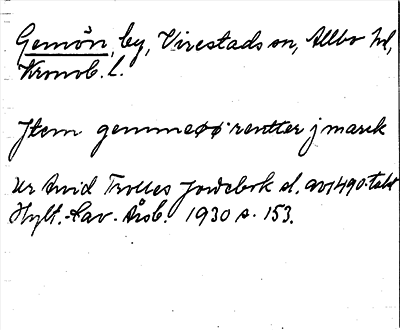 Gemön, by, Virestads sn, Allbo hd,
Kronob. l.
Jtem gemmeøø rentter j marck
Ur Arvid Trolles Jordebok sl. av 1490-talet
Hylt.-Cav. Årsb. 1930 s. 153.